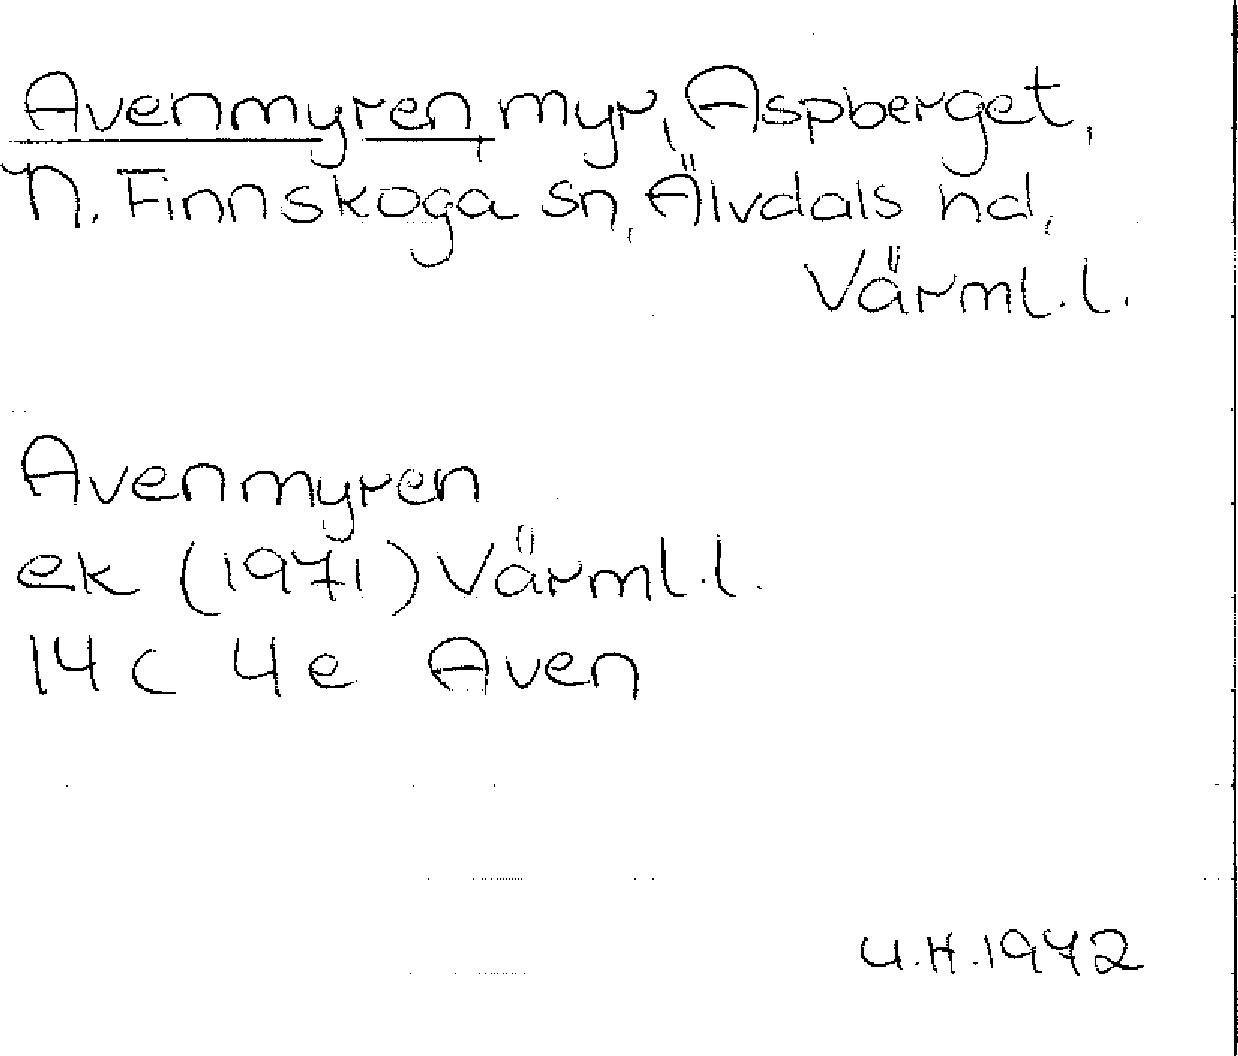 Avenmyren, myr, Aspberget,
N. Finnskoga sn, Älvdals hd,
Värml. l.
Avenmyren
ek (1971) Värml. l.
14 c 4 e Aven
U.H. 1972